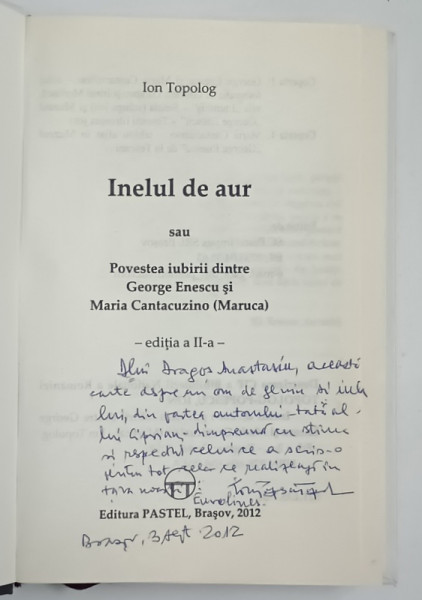 Ion Topolog
Inelul de aur
sau
Povestea iubirii dintre
George Enescu și
Maria Cantacuzino (Maruca)
– ediția a II-a –
Dlui Dragoș Anastasiu, această
carte despre un om de geniu și
lui, din partea autorului – tatăl
lui Ciprian, împreună cu stima
și respectul celui ce a scris-o
pentru tot ceea ce realizează în
țara noastră
Eurolines
Editura PASTEL, Brașov, 2012
Brașov, 3 sept 2012